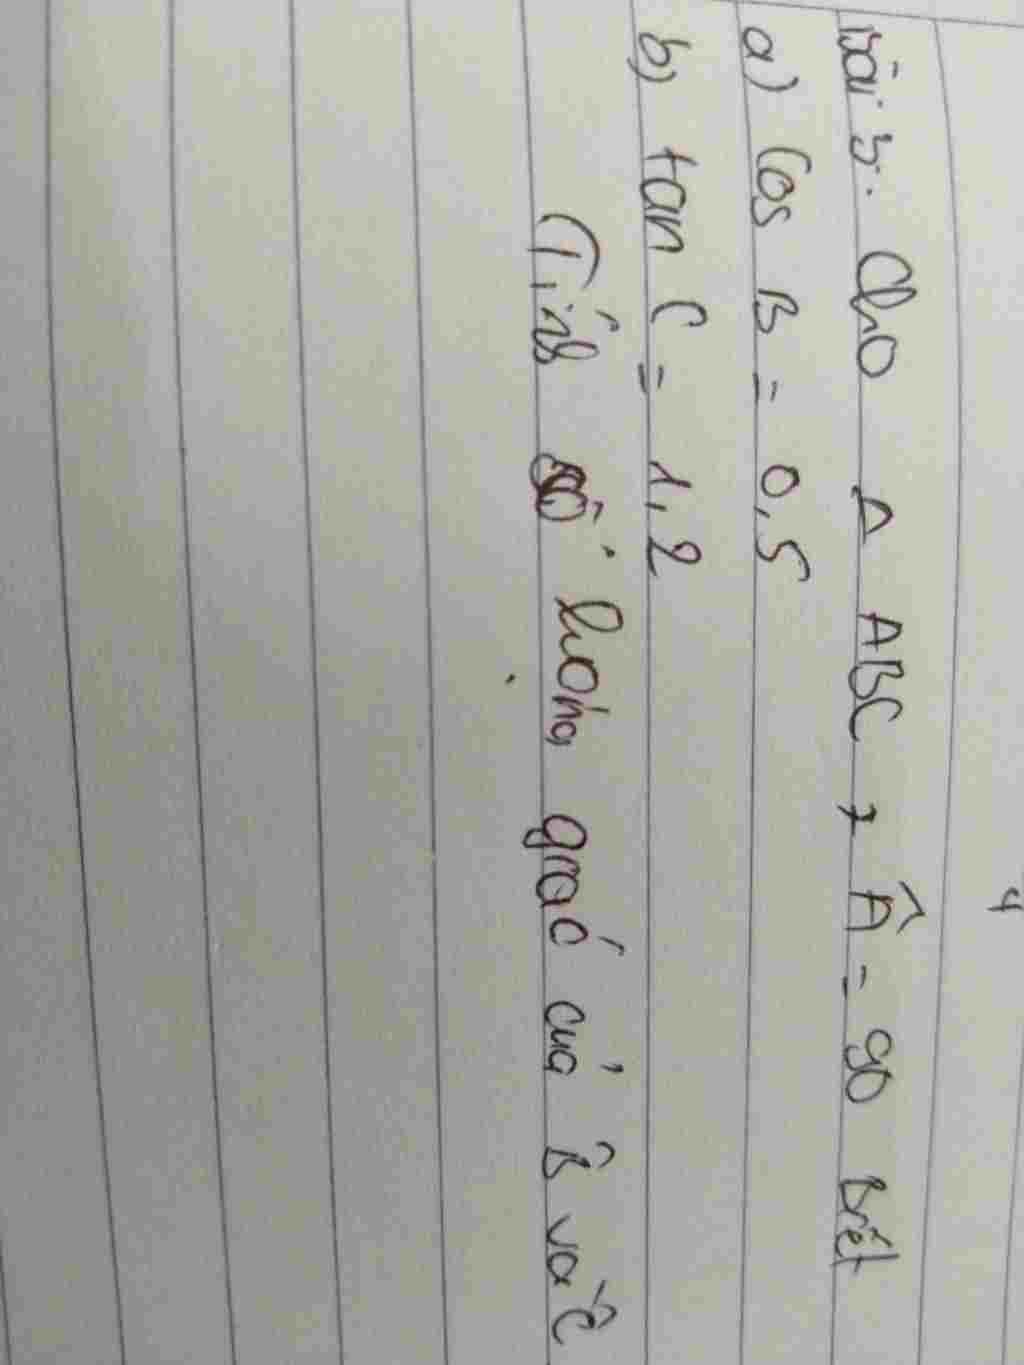 Bài 3: Cho Δ ABC, Â = 90 Biết
a) Cos B = 0,5
b) tan C = 1,2
(Tính số lượng giác của B̂ và Ĉ